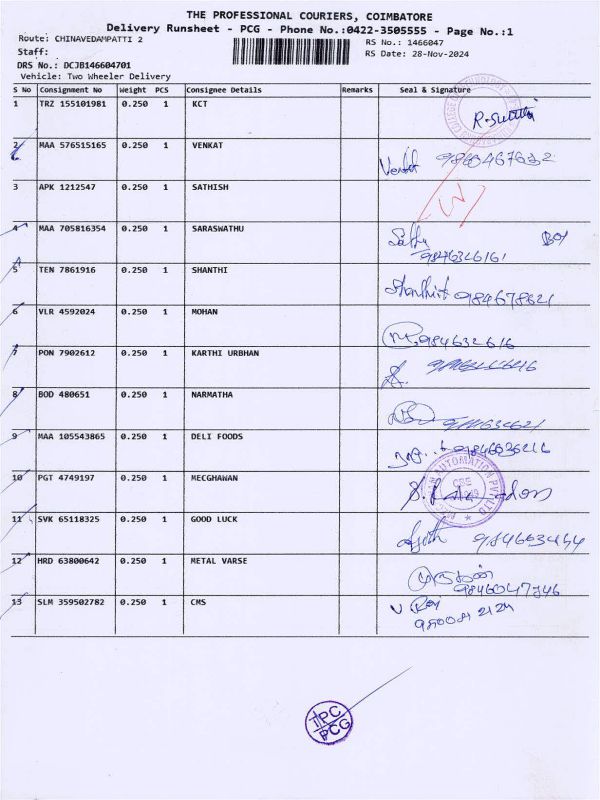 THE PROFESSIONAL COURIERS, COIMBATORE
Delivery Runsheet - PCG - Phone No.:0422-3505555 - Page No.:1
Route: CHINAVEDAMPATTI 2
RS No.: 1466047
Staff:
RS Date: 28-Nov-2024
DRS No.: DCJB146604701
Vehicle: Two Wheeler Delivery
S No Consignment No Weight PCS Consignee Details Remarks Seal & Signature
1 TRZ 155101981 0.250 1 KCT
2 MAA 576515165 0.250 1 VENKAT
Venkat
3 APK 1212547 0.250 1 SATHISH
4 MAA 705816354 0.250 1 SARASWATHU
9846326161
5 TEN 7861916 0.250 1 SHANTHI
Shanthi 9884678621
6 VLR 4592024 0.250 1 MOHAN
9984632616
7 PON 7902612 0.250 1 KARTHI URBHAN
8 BOD 480651 0.250 1 NARMATHA
9 MAA 105543865 0.250 1 DELI FOODS
10 PGT 4749197 0.250 1 MECGHAWAN
AUTOMATION PVT LTD
11 SVK 65118325 0.250 1 GOOD LUCK
12 HRD 63800642 0.250 1 METAL VARSE
முருகன்
9846047346
13 SLM 359502782 0.250 1 CMS
TPC
PCG